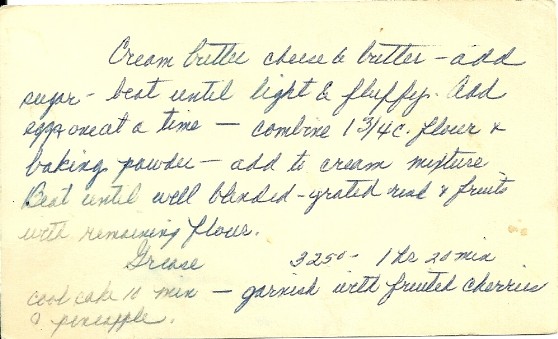 Cream butter cheese & butter - add
sugar - beat until light & fluffy. Add
eggs one at a time - combine 1 3/4 c. flour &
baking powder - add to cream mixture
Beat until well blended - grated rind & fruits
with remaining flour.
Grease 325° - 1 hr 20 min
cool cake 10 min - garnish with fruited cherries
& pineapple.